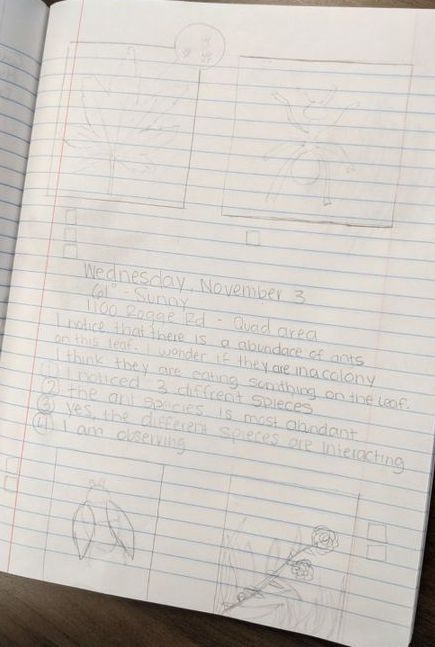 Wednesday, November 3
61° - Sunny
1100 Rogge Rd - Quad area
I notice that there is a abundace of ants
on this leaf. I wonder if they are in a colony
I think they are eating somthing on the leaf.
① I noticed 3 diffrent spieces
② the ant spicies is most abundant
③ yes, the different spieces are interacting
④ I am observing